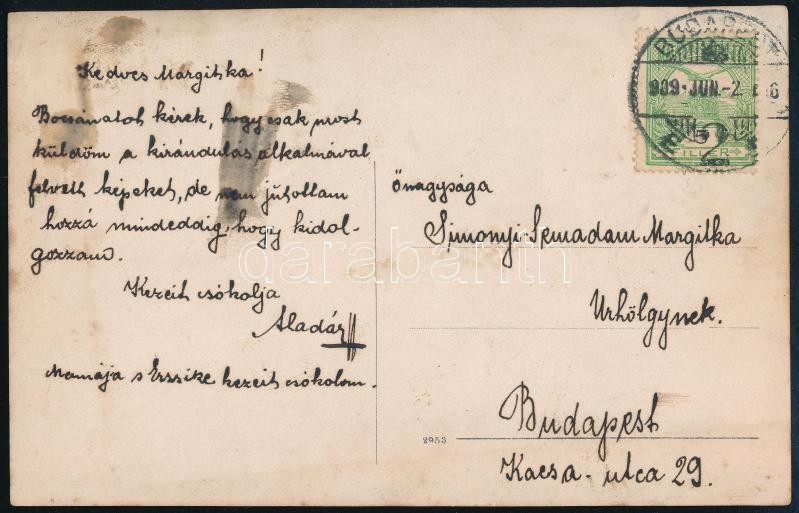 Kedves Margitka!
Bocsánatot kérek, hogy csak most
küldöm a kirándulás alkalmával
felvett képeket, de nem jutottam
hozzá mindeddig, hogy kidol-
gozzam.
Kezeit csókolja
Aladár
Mamája s Erssike kezeit csókolom.
Őnagysága
Simonyi-Semadam Margitka
Urhölgynek.
Budapest
Kacsa-utca 29.
2953
BUDAPEST
909·JUN.-2
5
FILLÉR
darabanth